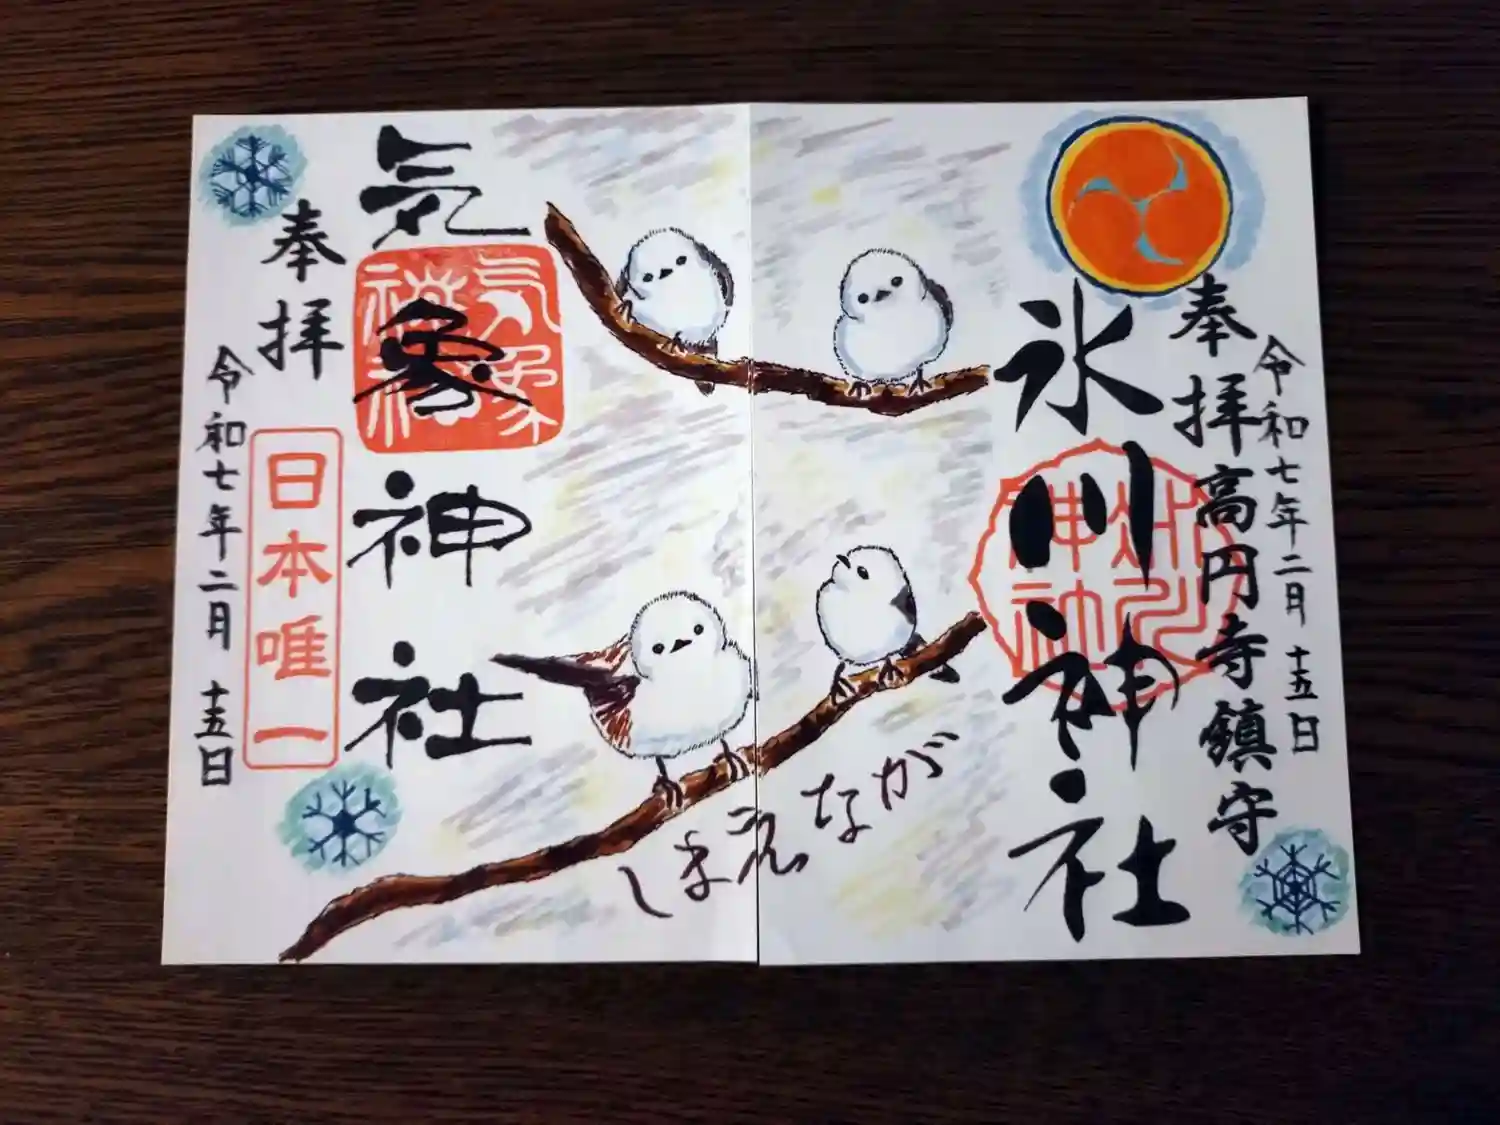 令和七年二月十五日
奉拝
高円寺鎮守
氷川神社
氷川神社
しまえなが
気象神社
気象神社
奉拝
日本唯一
令和七年二月十五日